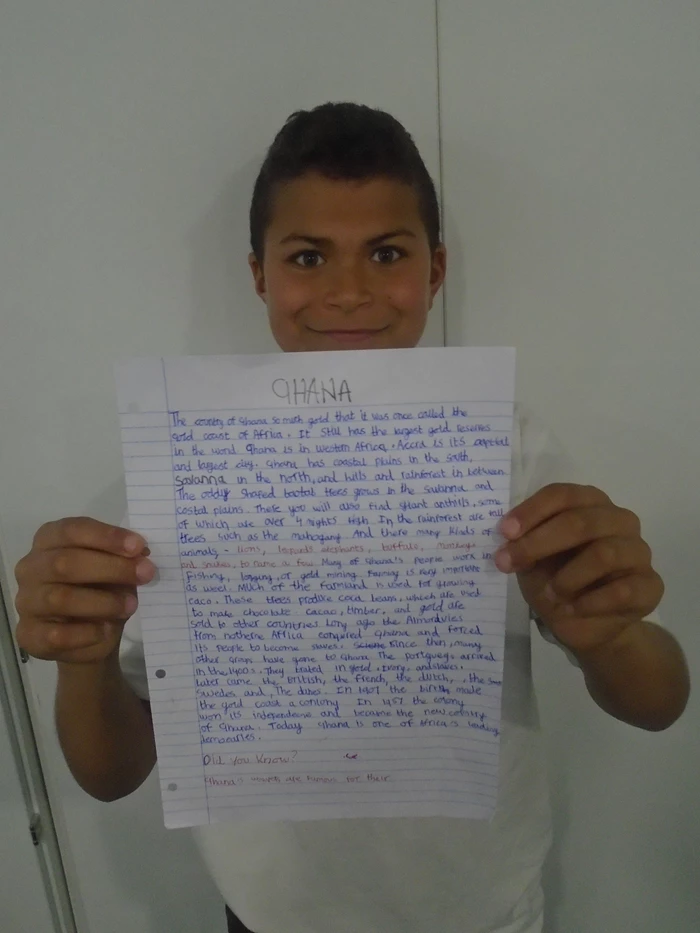 GHANA
The country of Ghana so much gold that it was once called the
gold coast of Africa. It still has the largest gold reserves
in the world Ghana is in western Africa. Accra is its capital
and largest city. Ghana has coastal plains in the south,
Savanna in the north, and hills and rainforest in between
The oddly shaped baobab trees grows in the Savanna and
costal plains. There you will also find giant anthills, some
of which are over 4 high. In the rainforest are tall
trees such as the mahogany And there many kinds of
animals, - lions, leopards elephants, buffalo, monkeys
and snakes, to name a few Many of Ghana's people work in
fishing, logging, or gold mining. Farming is very
as weel. Much of the farmland is used for growing
caco. These trees produce coca beans, which are used
to make chocolate. Cacao, timber, and gold are
sold to other countries Long ago the
from Africa Ghana and forced
its people to become Since then, many
other groups have gone to Ghana. The arrived
in the 1400s. They traded in gold, ivory, and
later came the British, the French, the dutch, the
Swedes and, The danes. In the british made
the gold coast a In 1957 the colony
won its independence and became the new country
of Ghana. Today Ghana is one of Africa's leading
democracies.
Did you know?
Ghana's are famous for their